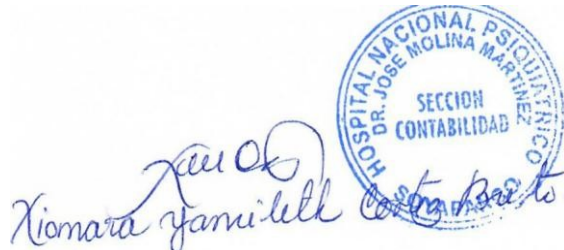 HOSPITAL NACIONAL PSIQUIATRICO
DR. JOSE MOLINA MARTINEZ
SECCION
CONTABILIDAD
SOYAPANGO
Xiomara Yamileth Cortez